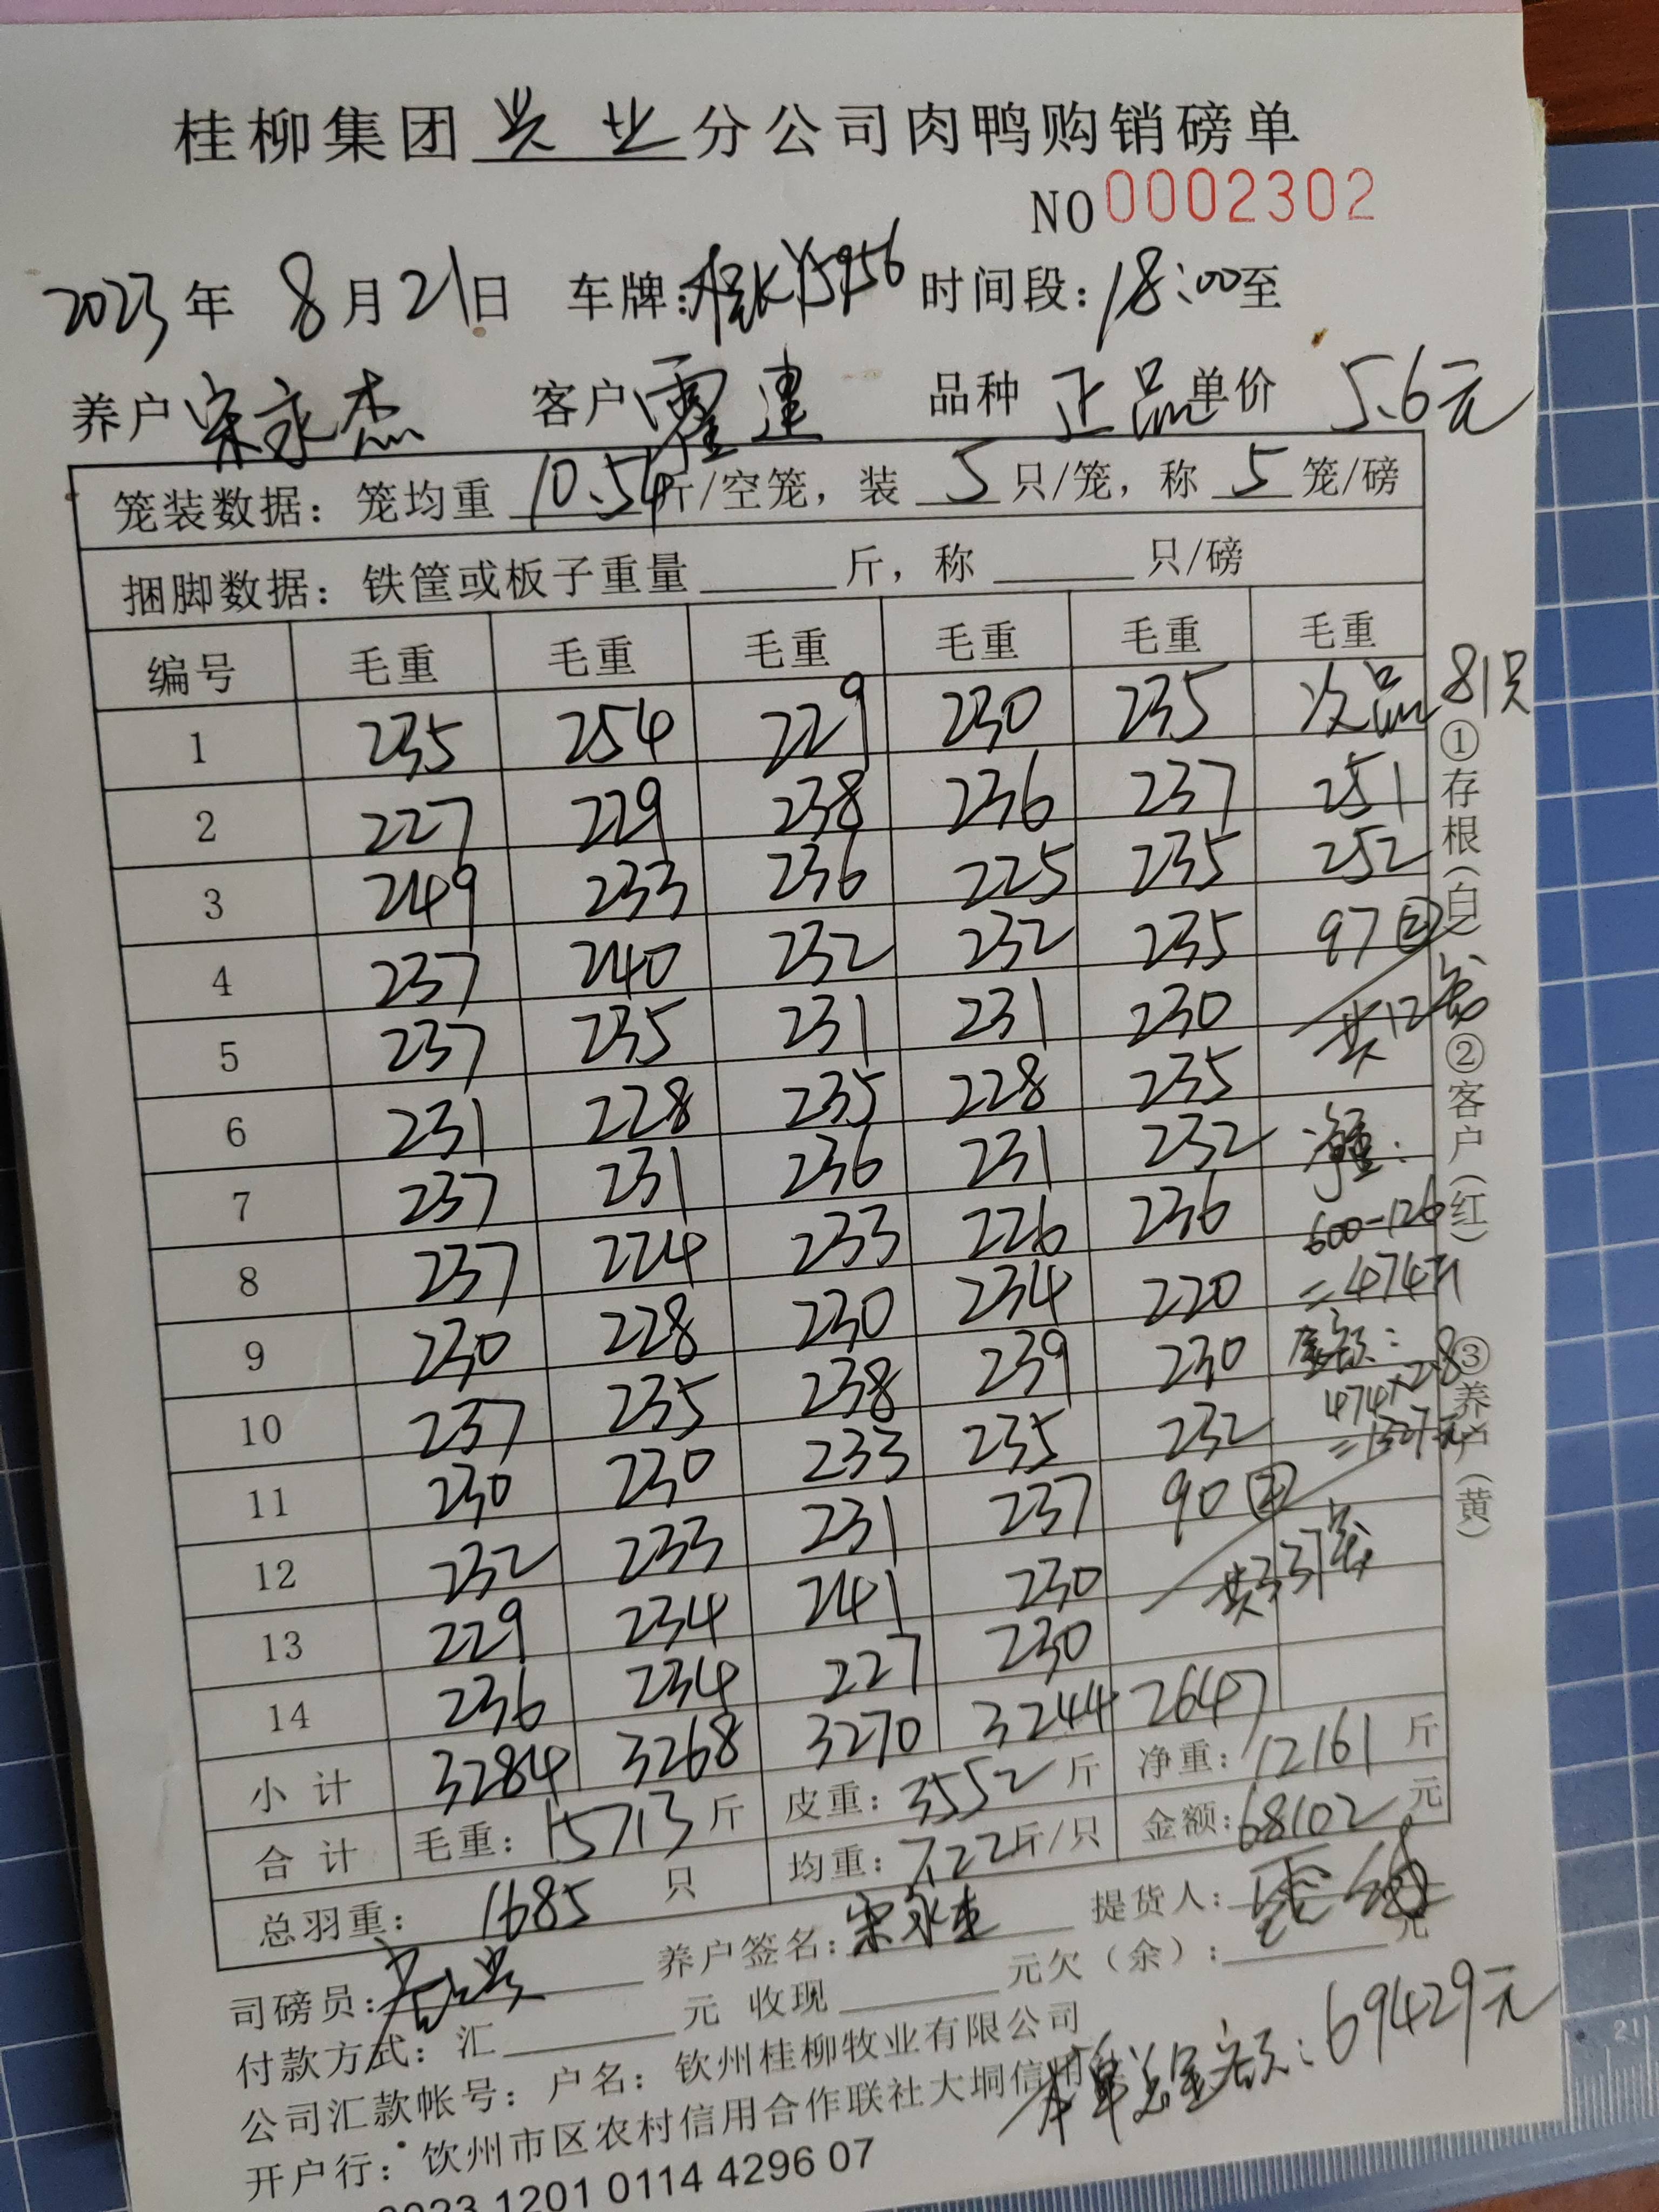 桂柳集团兴业分公司肉鸭购销磅单
NO 0002302
2023年 8月21日 车牌:桂KY5956 时间段:18:00至
养户 宋永杰 客户 霍建 品种 正品 单价 5.6元
笼装数据: 笼均重 10.54 斤/空笼, 装 5 只/笼, 称 5 笼/磅
捆脚数据: 铁筐或板子重量 ______ 斤, 称 ______ 只/磅
编号 毛重 毛重 毛重 毛重 毛重 毛重
1 235 254 229 230 235 次品 81只
2 227 229 238 236 237 251
3 249 233 236 225 235 252
4 237 240 232 232 235 97②
5 237 235 231 231 230 共12笼
6 231 228 235 228 235
7 237 231 236 231 232 净重:
8 237 224 233 226 236 600-126
=474斤
9 230 228 230 234 220 金额:
10 237 235 238 239 230 474×2.8
=1327元
11 230 230 233 235 232
12 232 233 231 237 90②
13 229 234 241 230 共337笼
14 236 234 227 230
小计 3284 3268 3270 3244 2647
合计 毛重: 15713 斤 皮重: 3552 斤 净重: 12161 斤
总羽重: 1685 只 均重: 7.22 斤/只 金额: 68102 元
司磅员: 养户签名: 宋永杰 提货人:
付款方式: 汇______元 收现______元欠(余):______元
本单总金额: 69429元
公司汇款帐号: 户名: 钦州桂柳牧业有限公司
开户行: 钦州市区农村信用合作联社大垌信用
1201 0114 4296 07
①存根(白)②客户(红)③养户(黄)
21